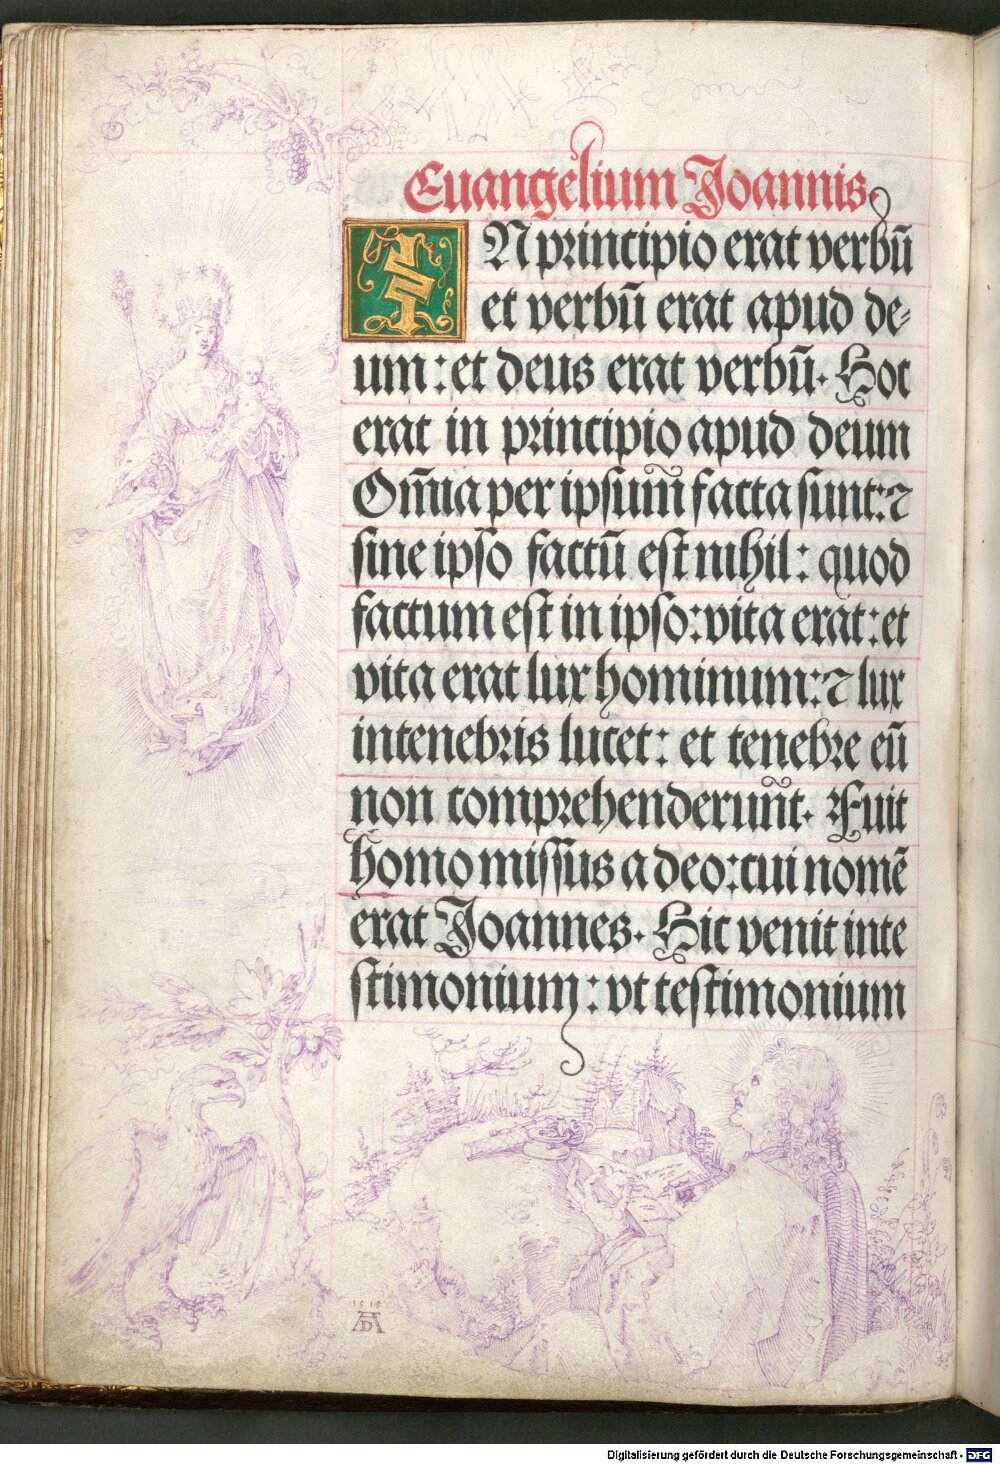 12
Euangelium Joannis.
IN principio erat verbū
et verbū erat apud de-
um: et deus erat verbū. Hoc
erat in principio apud deum
Om̄ia per ipsum̄ facta sunt: ⁊
sine ipso factū est nihil: quod
factum est in ipso: vita erat: et
vita erat lux hominum: ⁊ lux
in tenebris lucet: et tenebre eū
non comprehenderun̄t. Fuit
homo missus a deo: cui nomē
erat Joannes. Hic venit in te
stimonium: vt testimonium
1515
AD
Digitalisierung gefördert durch die Deutsche Forschungsgemeinschaft - DFG